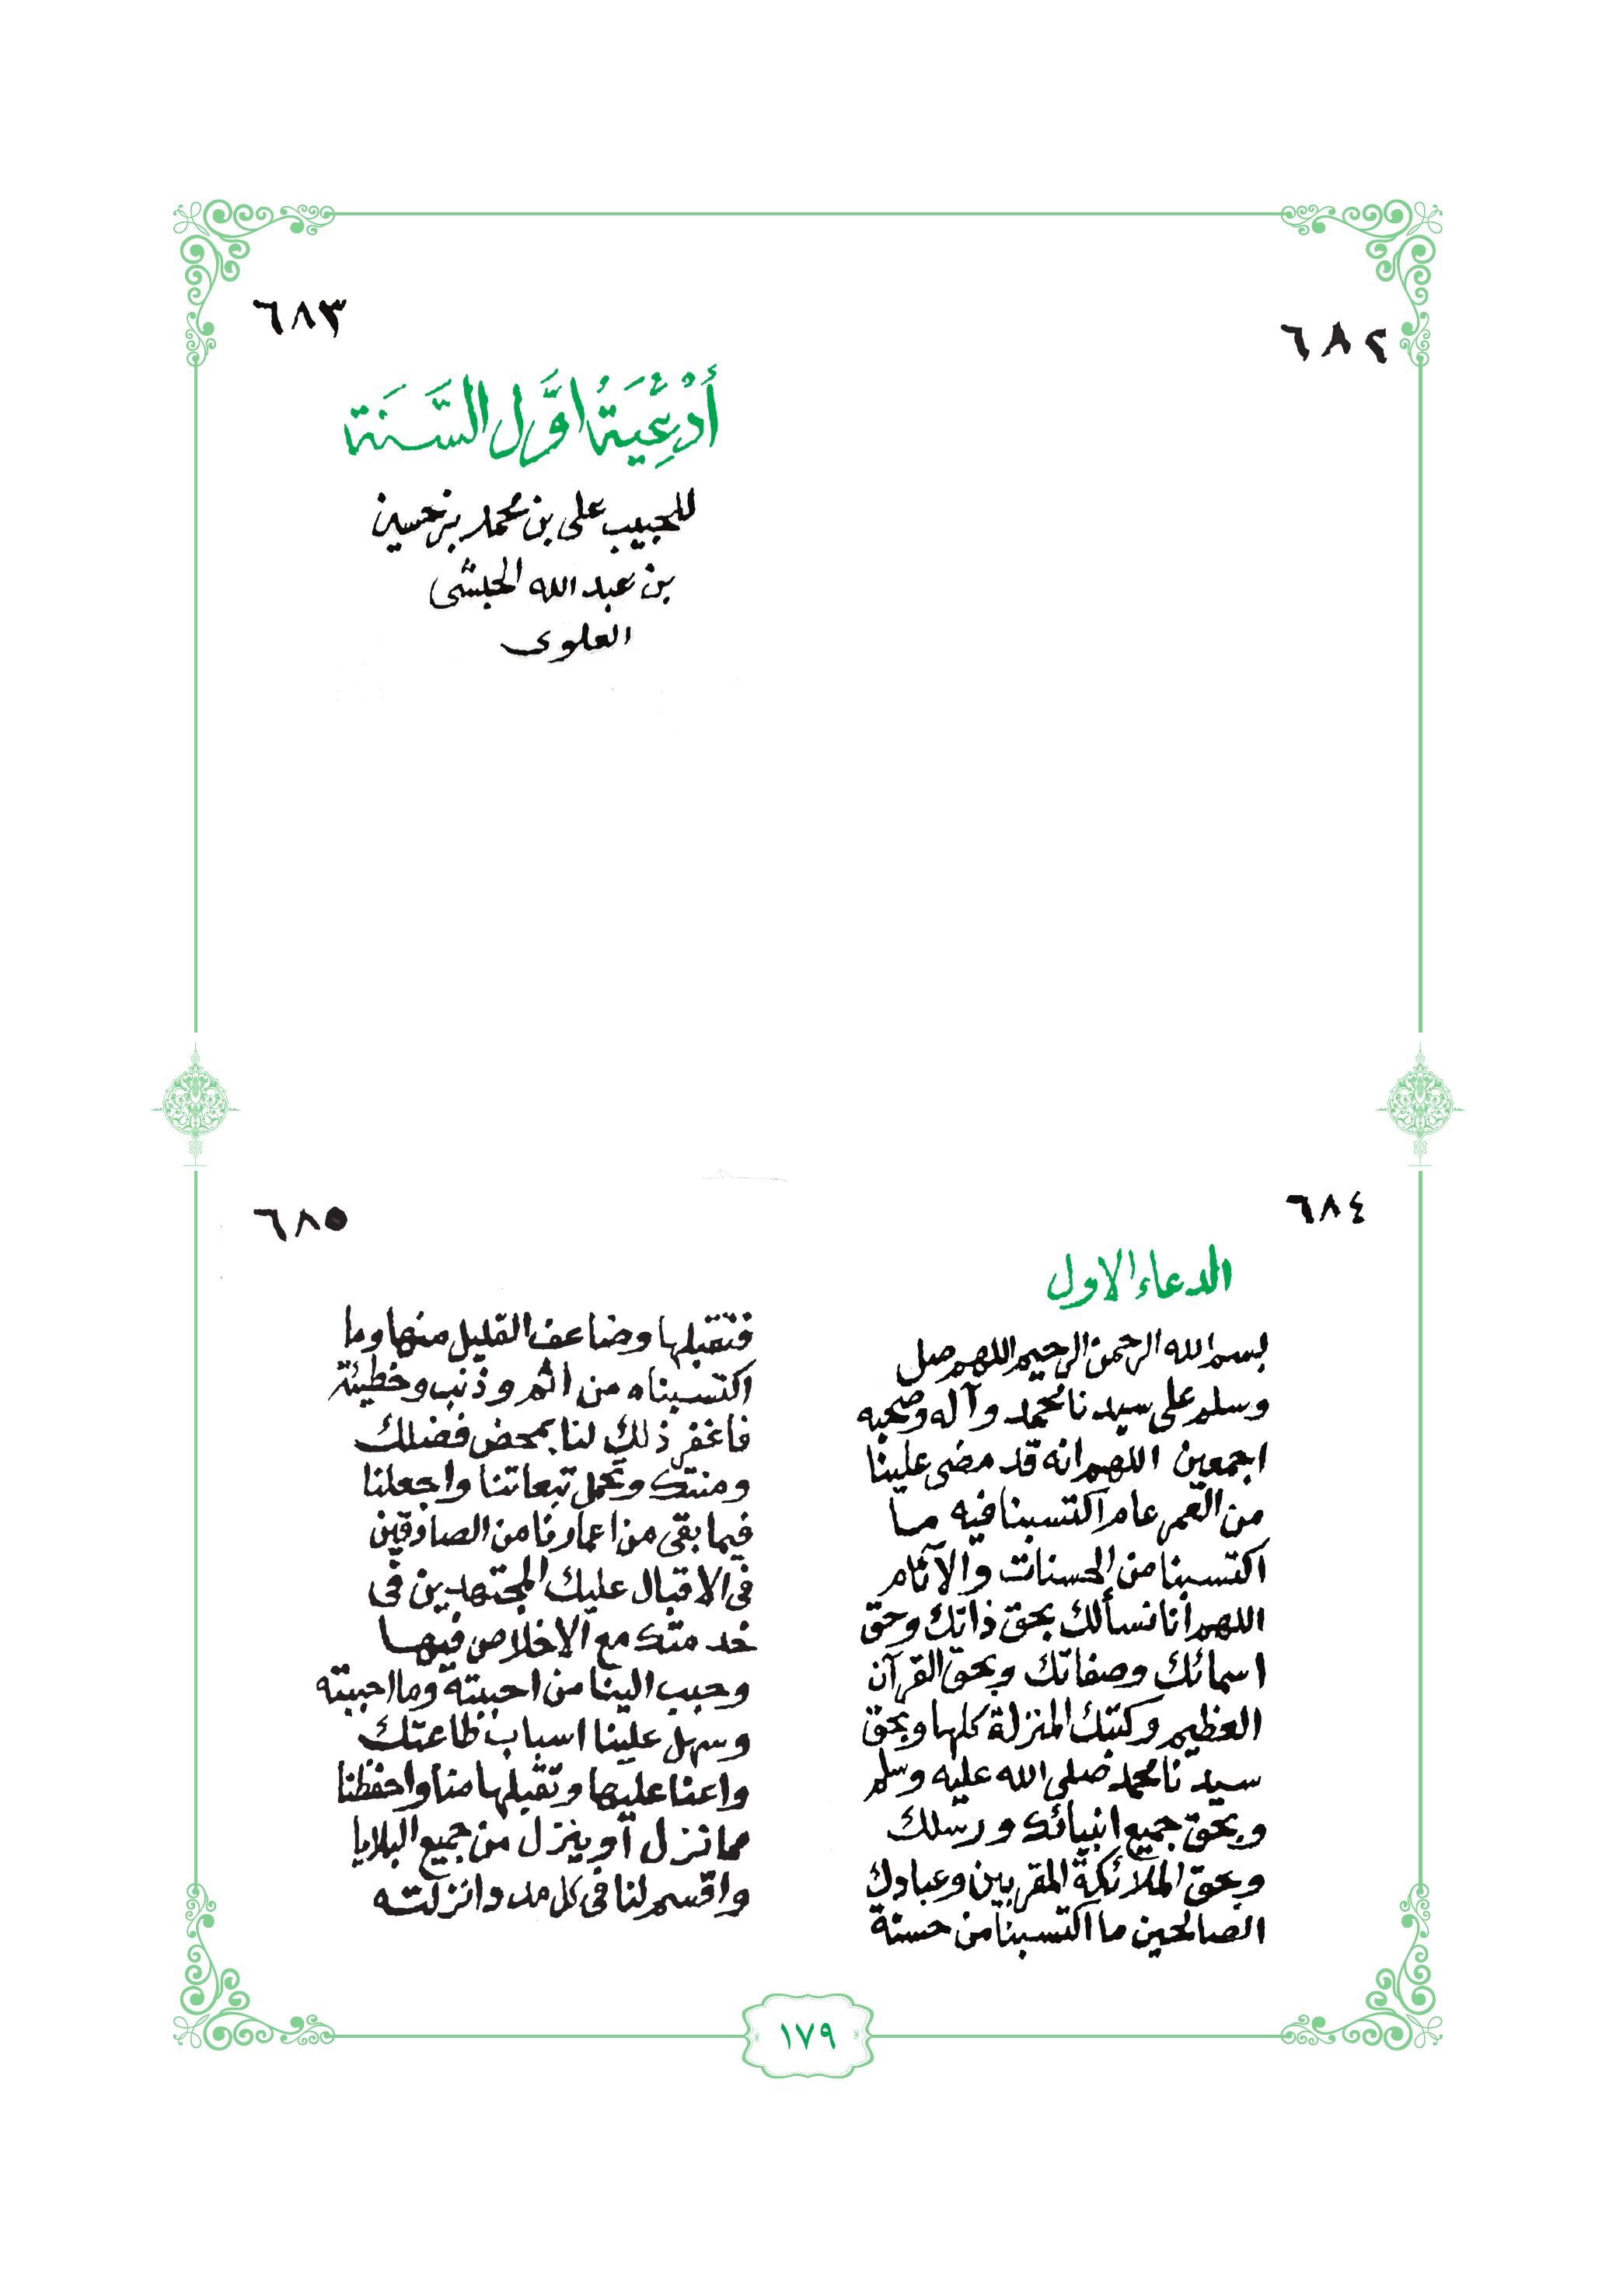 ٦٨٢
٦٨٣
أَدْعِيَةُ اوَّل السَّنَة
للحبيب على بن محمد بن حسين
بن عبد الله الحبشى
العلوى
٦٨٤
الدعاء الاول
بسم الله الرحمن الرحيم اللهم صل
وسلم على سيدنا محمد وآله وصحبه
اجمعين اللهم انه قد مضى علينا
من العمر عام اكتسبنا فيه ما
اكتسبنا من الحسنات والآثام
اللهم انا نسألك بحق ذاتك وحق
اسمائك وصفاتك وبحق القرآن
العظيم وكتبك المنزلة كلها وبحق
سيدنا محمد صلى الله عليه وسلم
وبحق جميع انبيائك ورسلك
وبحق الملائكة المقربين وعبادك
الصالحين ما اكتسبنا من حسنة
٦٨٥
فتقبلها وضاعف القليل منها وما
اكتسبناه من اثم وذنب وخطيئة
فاغفر ذلك لنا بمحض فضلك
ومنتك وتحمل تبعاتنا واجعلنا
فيما بقى من اعمارنا من الصادقين
فى الاقبال عليك المجتهدين فى
خدمتك مع الاخلاص فيها
وحبب الينا من احببته وما احببته
وسهل علينا اسباب طاعتك
واعنا عليها وتقبلها منا واحفظنا
مما نزل أو ينزل من جميع البلايا
واقسم لنا فى كل مدد انزلته
١٧٩